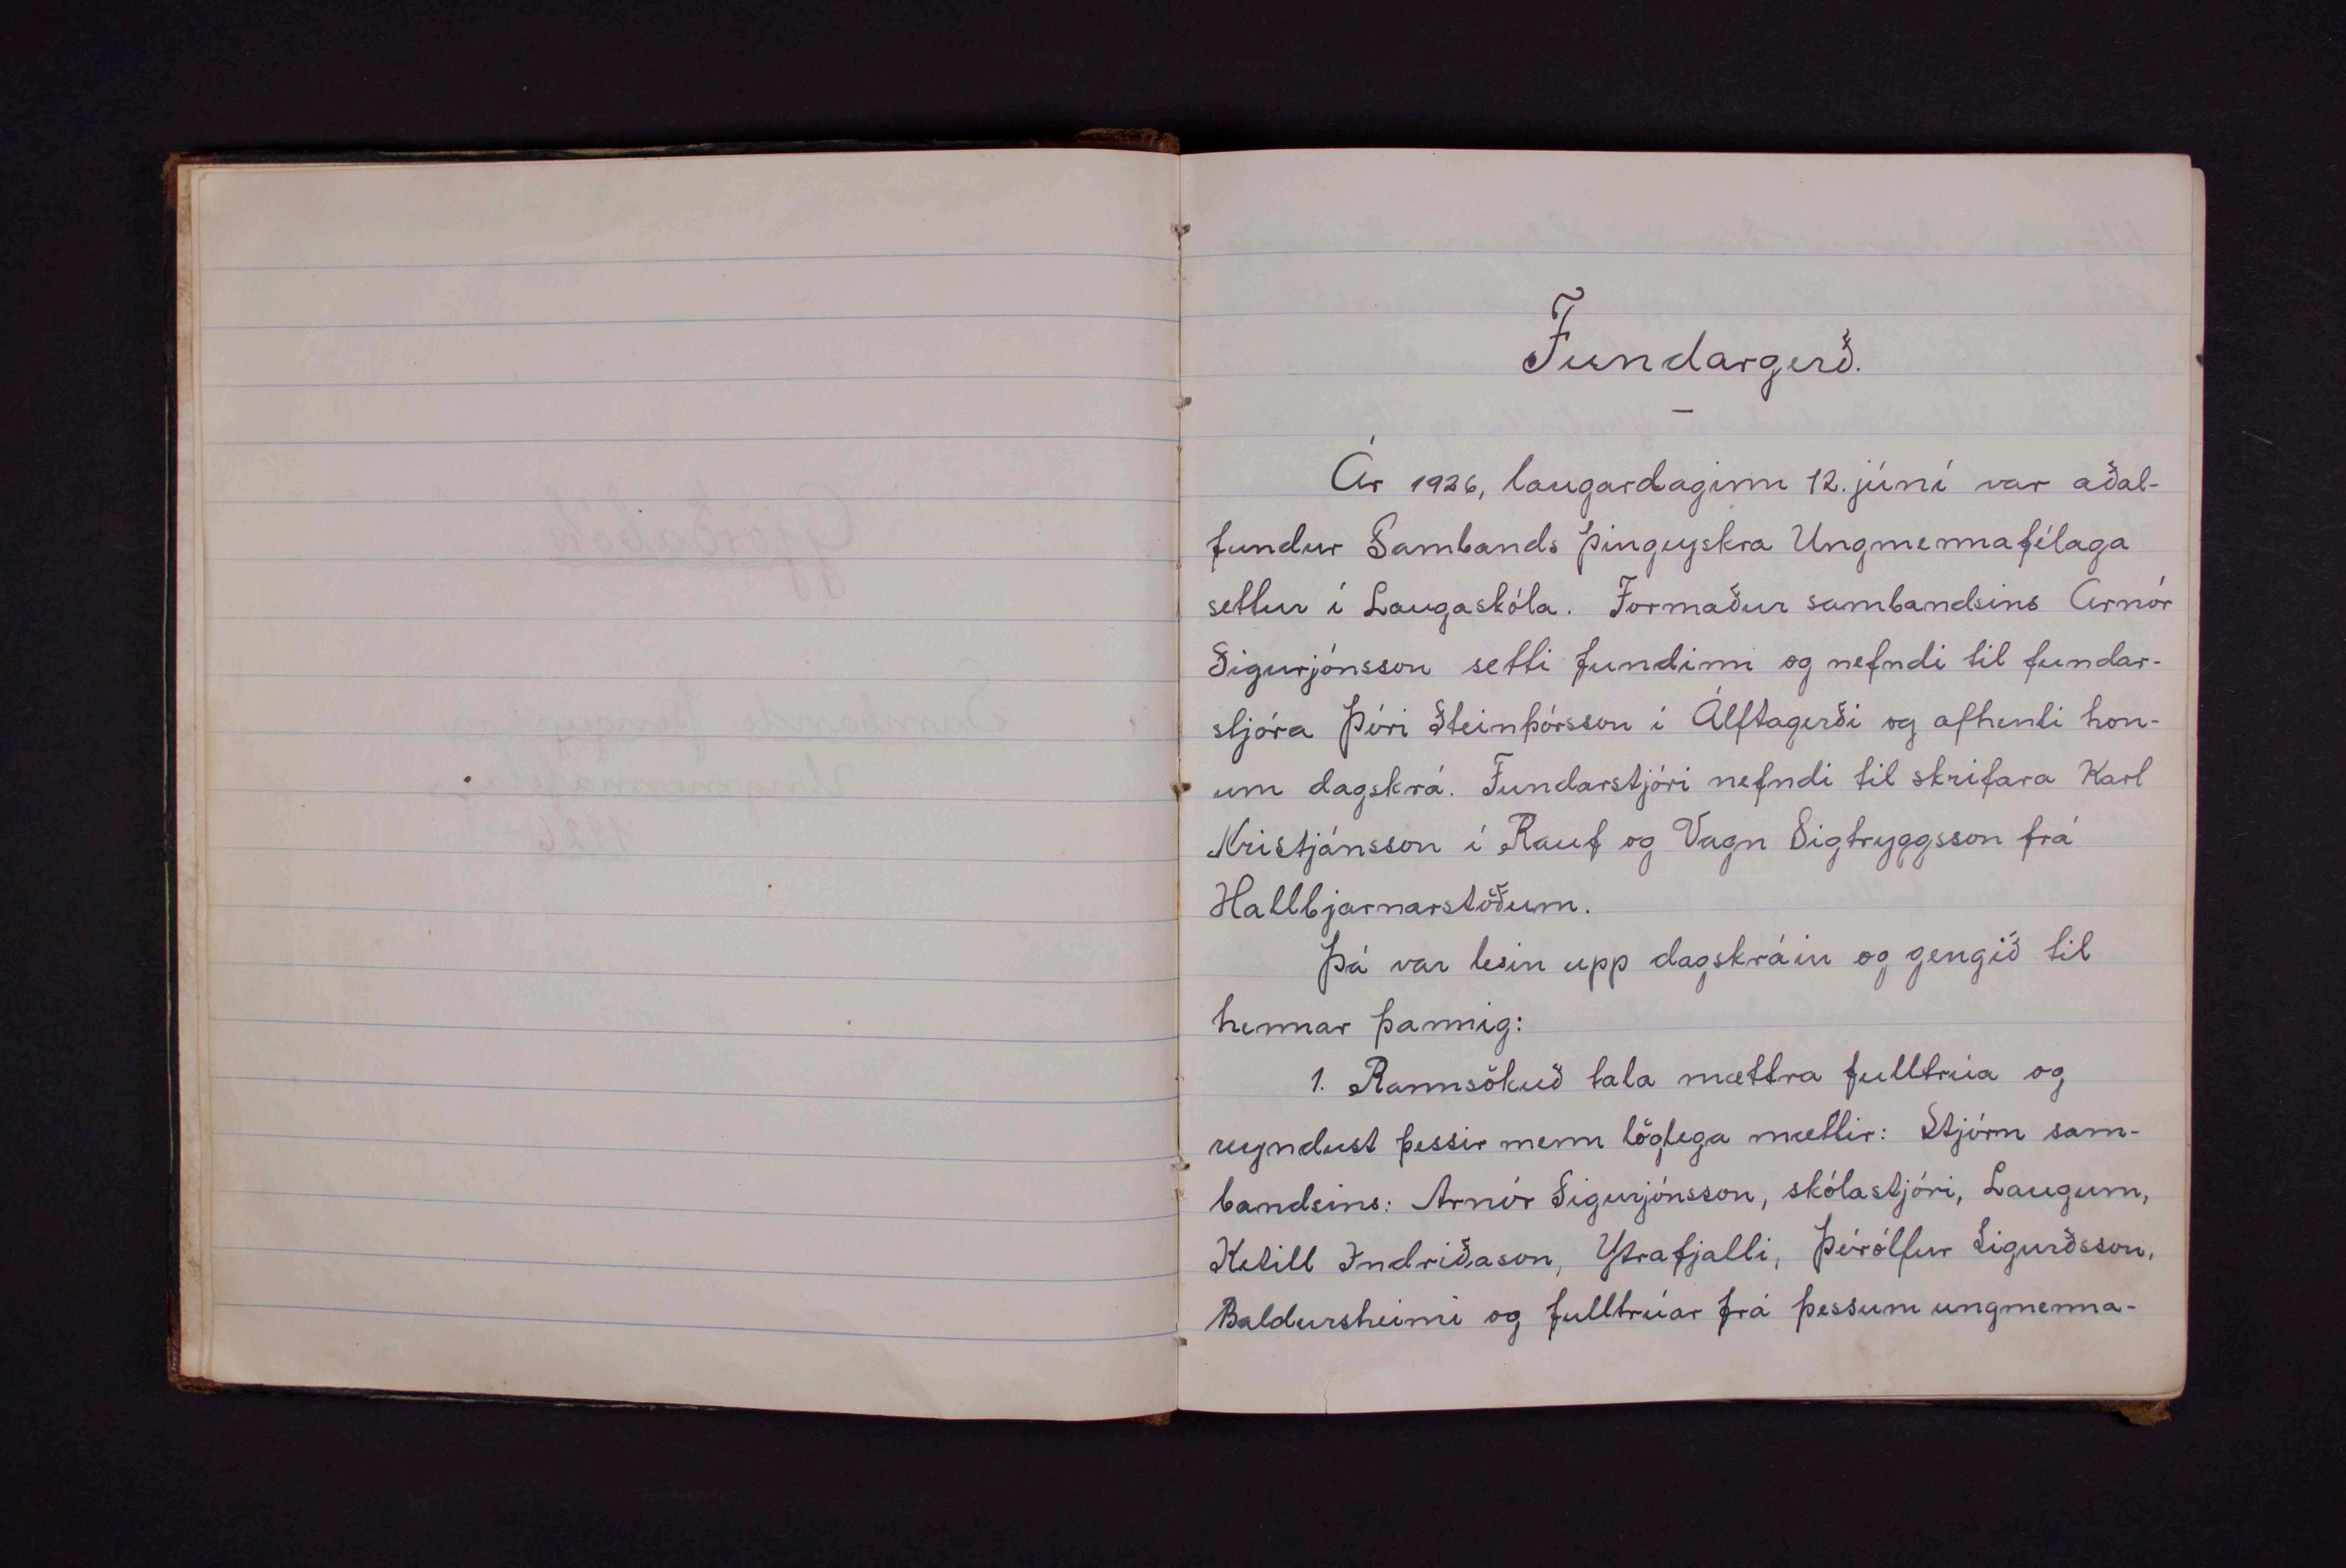 Fundargerð.
Ár 1926, laugardaginn 12. júní var aðal-
fundur Sambands þingeyskra Ungmennafélaga
settur í Laugaskóla. Formaður sambandsins Arnór
Sigurjónsson setti fundinn og nefndi til fundar-
stjóra Þóri Steinþórsson í Álftagerði og afhenti hon-
um dagskrá. Fundarstjóri nefndi til skrifara Karl
Kristjánsson í Rauf og Vagn Sigtryggsson frá
Hallbjarnarstöðum.
Þá var lesin upp dagskráin og gengið til
hennar þannig:
1. Rannsökuð tala mættra fulltrúa og
reyndust þessir menn löglega mættir: Stjórn sam-
bandsins: Arnór Sigurjónsson, skólastjóri, Laugum,
Ketill Indriðason, Ytrafjalli, Þórólfur Sigurðsson,
Baldursheimi og fulltrúar frá þessum ungmenna-